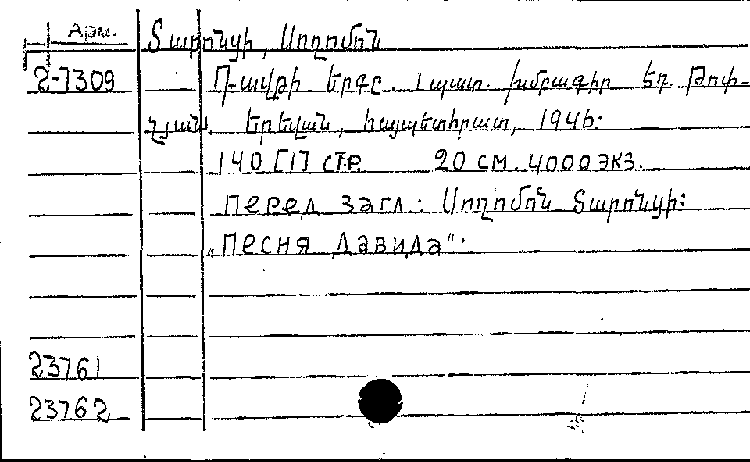 Арм.
Տարոնցի, Սողոմոն
2-7309 Դավթի երգը. Պատ. խմբագիր Եղ. Թոփ-
չյան. Երևան, Հայպետհրատ, 1946:
140 [1] стр 20 см. 4000 экз.
Перед загл.: Սողոմոն Տարոնցի:
„Песня Давида“.
23761
23762